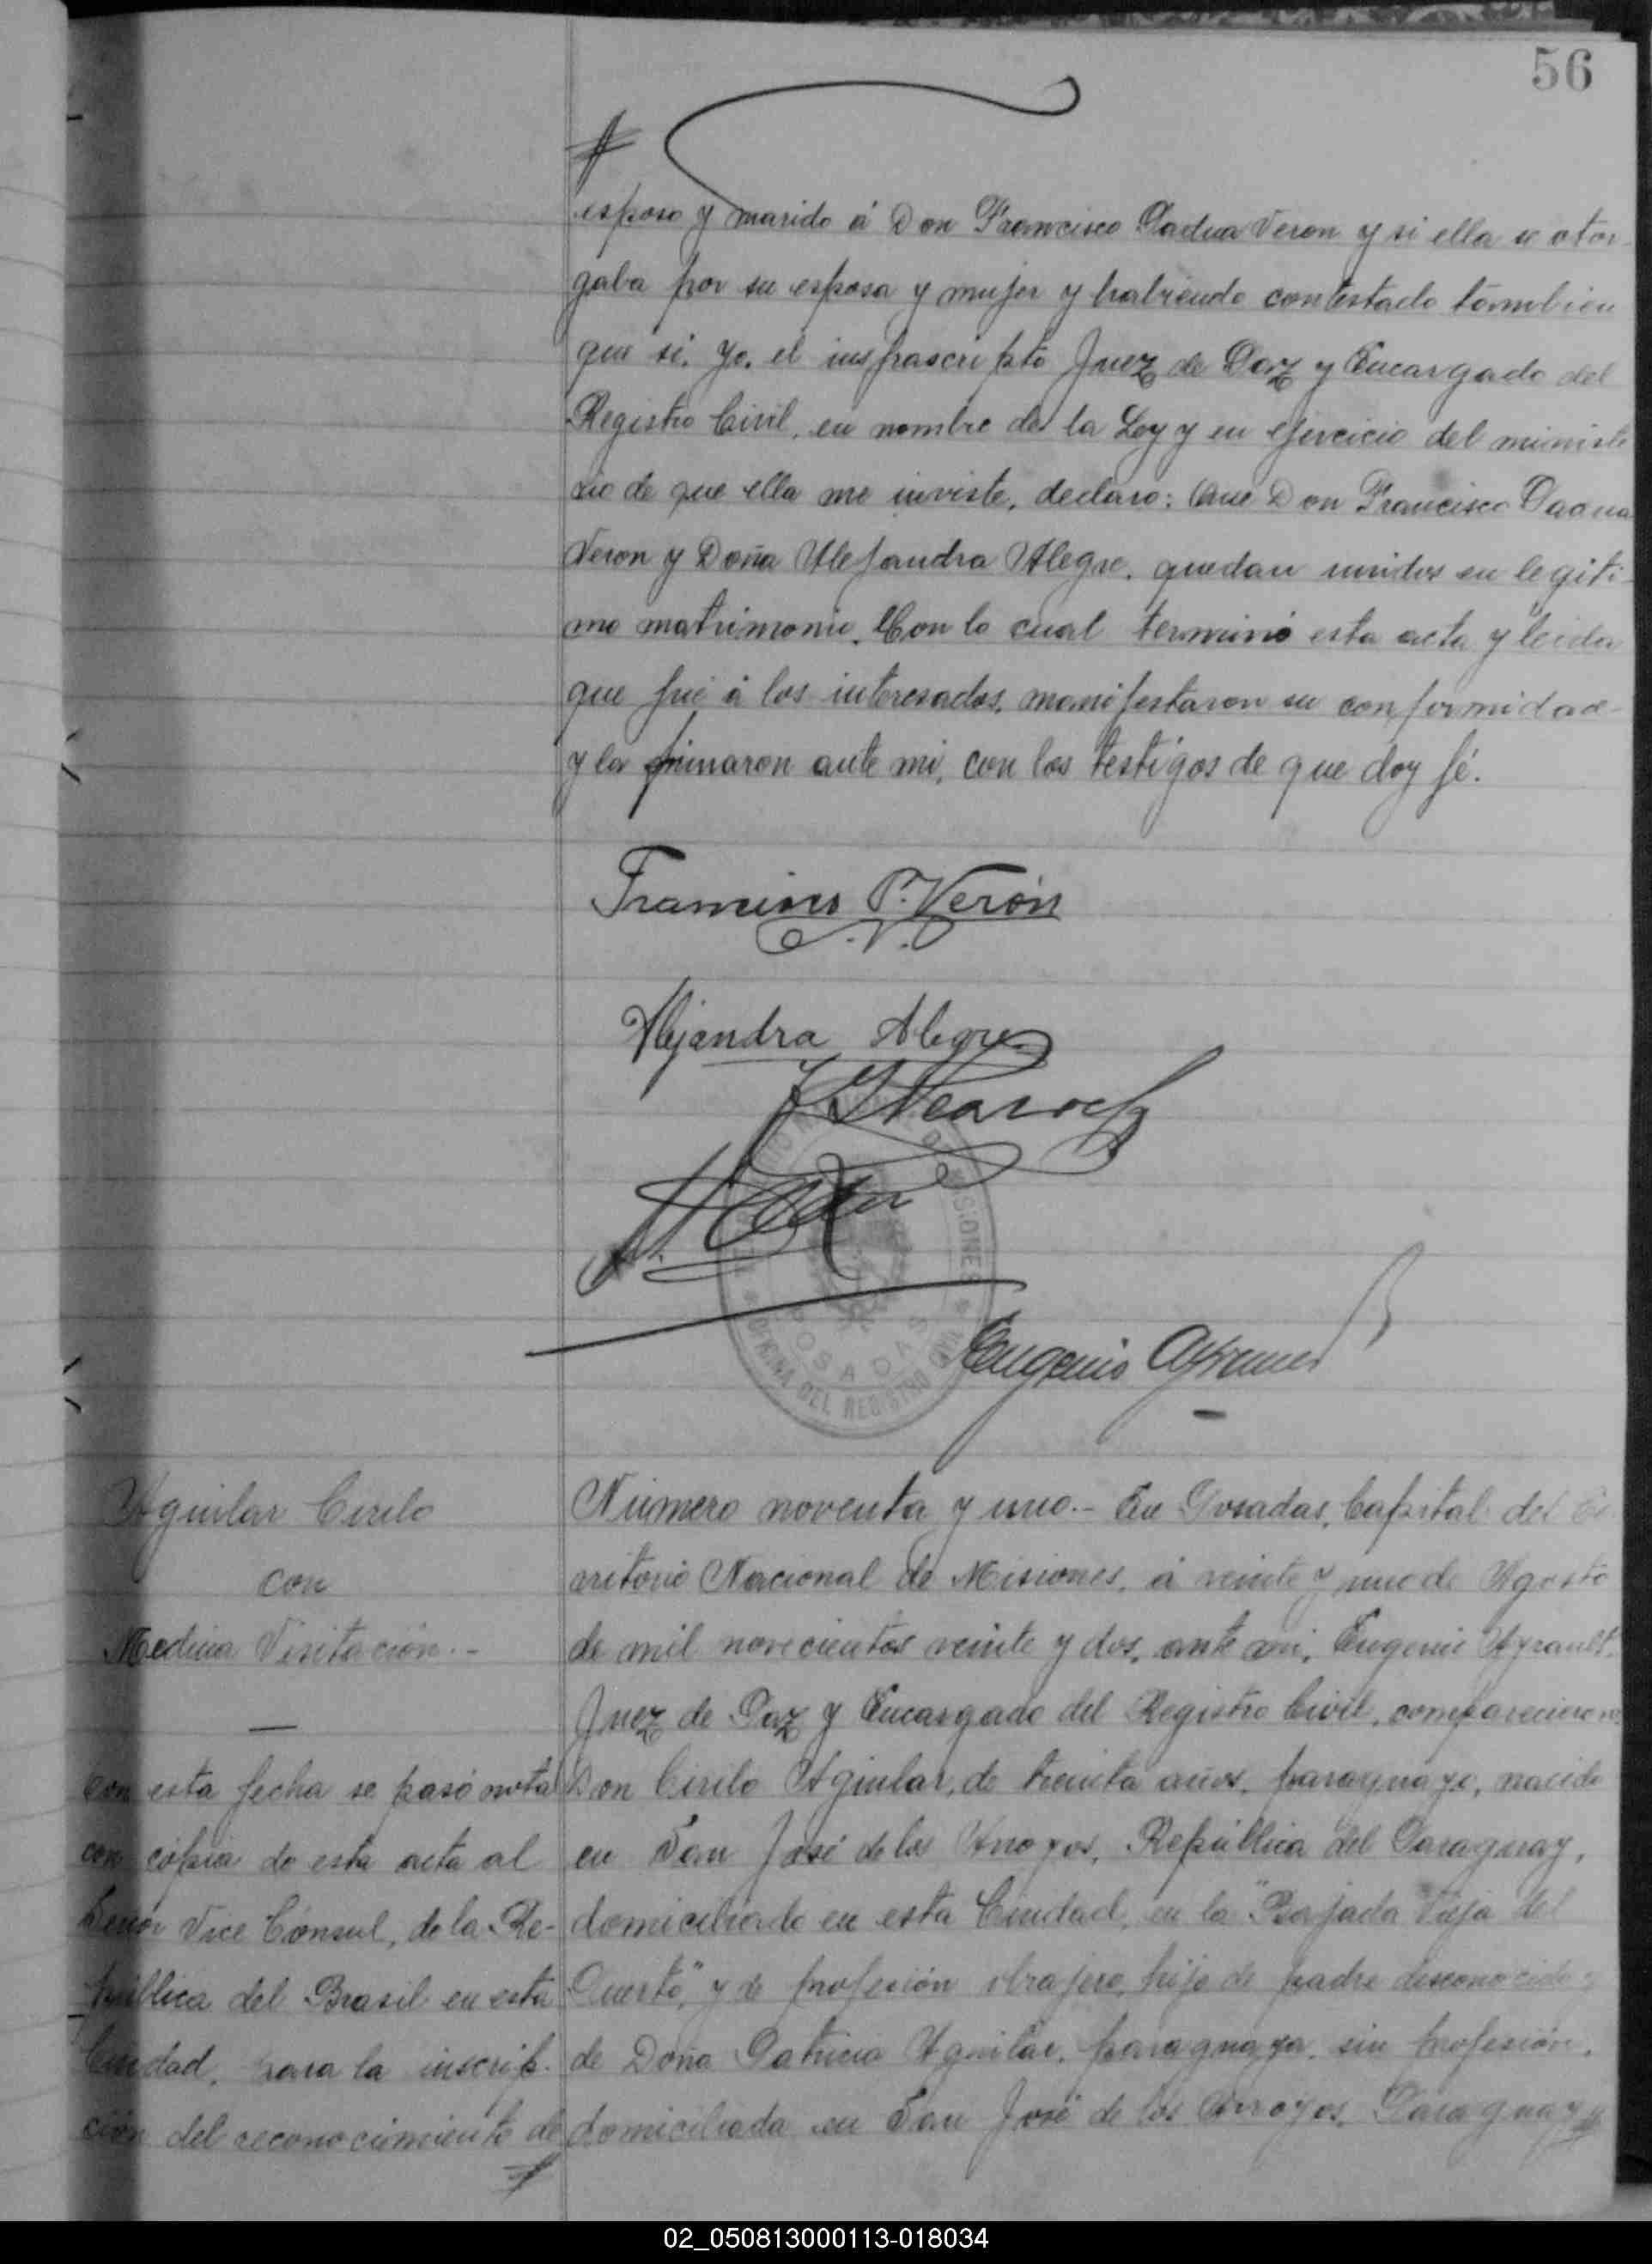 56
esposo y marido á Don Francisco Padua Veron y si ella se otor-
gaba por su esposa y mujer y habiendo contestado tambien
que si. Yo, el insfrascripto Juez de Paz y Encargado del
Registro Civil, en nombre de la Ley y en ejercicio del ministe
rio de que ella me inviste, declaro: Que Don Francisco Padua
Veron y Doña Alejandra Alegre, quedan unidos en legiti-
mo matrimonio. Con lo cual terminó esta acta y leida
que fué á los interesados, manifestaron su conformidad
y la firmaron ante mi, con los testigos de que doy fé.
Francisco P. Verón
Alejandra Alegre
MISIONES
POSADAS
OFICINA DEL REGISTRO CIVIL
Eugenio Ayrault
Aguilar Cirilo
con
Medina Visitación.-
Con esta fecha se pasó nota
con cópia de esta acta al
Señor Vice Cónsul, de la Re-
pública del Brasil en esta
Ciudad, para la inscrip-
ción del reconocimiento de
Número noventa y uno.- En Posadas, Capital del Te
rritorio Nacional de Misiones, á veinte y uno de Agosto
de mil novecientos veinte y dos, ante mi, Eugenio Ayrault,
Juez de Paz y Encargado del Registro Civil, comparecieron:
Don Cirilo Aguilar, de treinta años, paraguayo, nacido
en San José de los Arroyos, República del Paraguay,
domiciliado en esta Ciudad, en la "Bajada Vieja del
Puerto", y de profesión obrajero, hijo de padre desconocido y
de Doña Patricia Aguilar, paraguaya, sin profesión,
domiciliada en San José de los Arroyos, Paraguay y
02_050813000113-018034